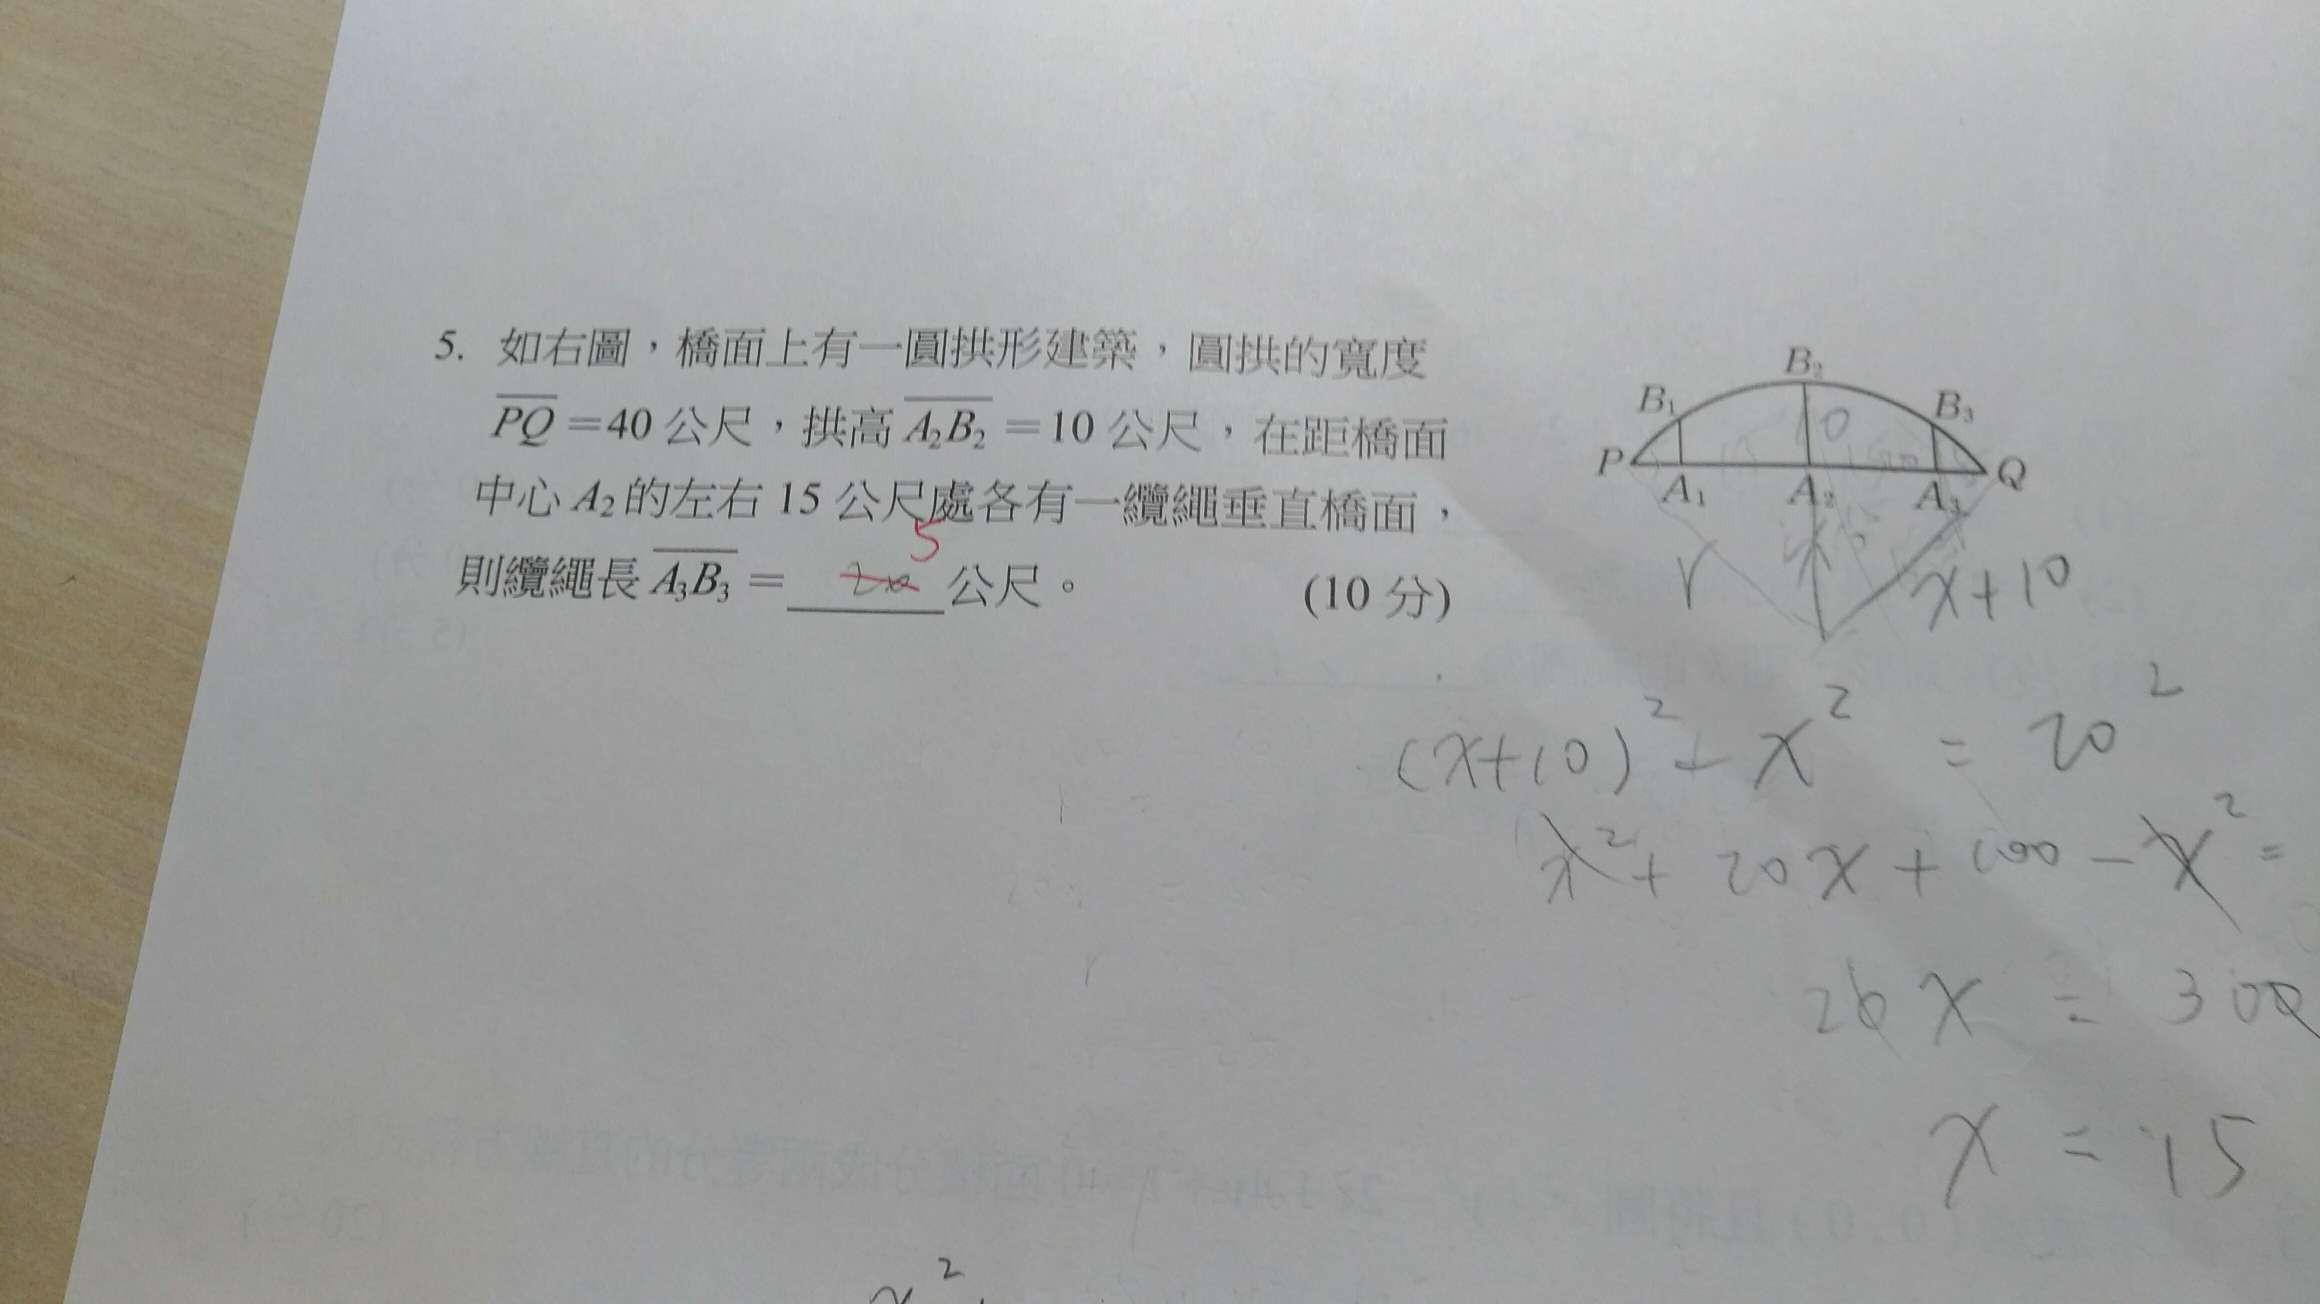 5. 如右圖，橋面上有一圓拱形建築，圓拱的寬度
PQ=40公尺，拱高 A₂B₂ =10 公尺，在距橋面
中心 A₂ 的左右 15 公尺處各有一纜繩垂直橋面，
5
則纜繩長 A₃B₃ = 公尺。 (10 分)
B₂
B₁ B₃
10
P Q
A₁ A₂ A₃
r x x+10
(x+10)² - x² = 20²
x² + 20x + 100 - x² =
20x = 300
x = 15
x²